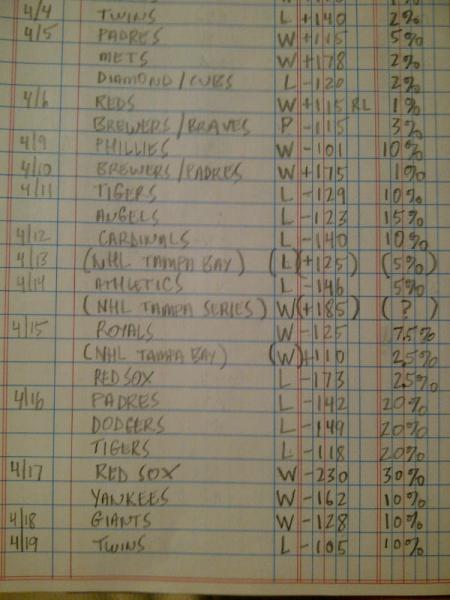 4/4 TWINS L +140 2%
4/5 PADRES W +115 5%
METS W +178 2%
DIAMOND/CUBS L -120 2%
4/6 REDS W +115 RL 1%
BREWERS/BRAVES P -115 3%
4/9 PHILLIES W -101 10%
4/10 BREWERS/PADRES W +175 1%
4/11 TIGERS L -129 10%
ANGELS L -123 15%
4/12 CARDINALS L -140 10%
4/13 (NHL TAMPA BAY) (L)(+125) (5%)
4/14 ATHLETICS L -146 5%
(NHL TAMPA SERIES) W(+185) (?)
4/15 ROYALS W -125 7.5%
(NHL TAMPA BAY) (W)+110 2.5%
RED SOX L -173 2.5%
4/16 PADRES L -142 20%
DODGERS L -149 20%
TIGERS L -118 20%
4/17 RED SOX W -230 30%
YANKEES W -162 10%
4/18 GIANTS W -128 10%
4/19 TWINS L -105 10%